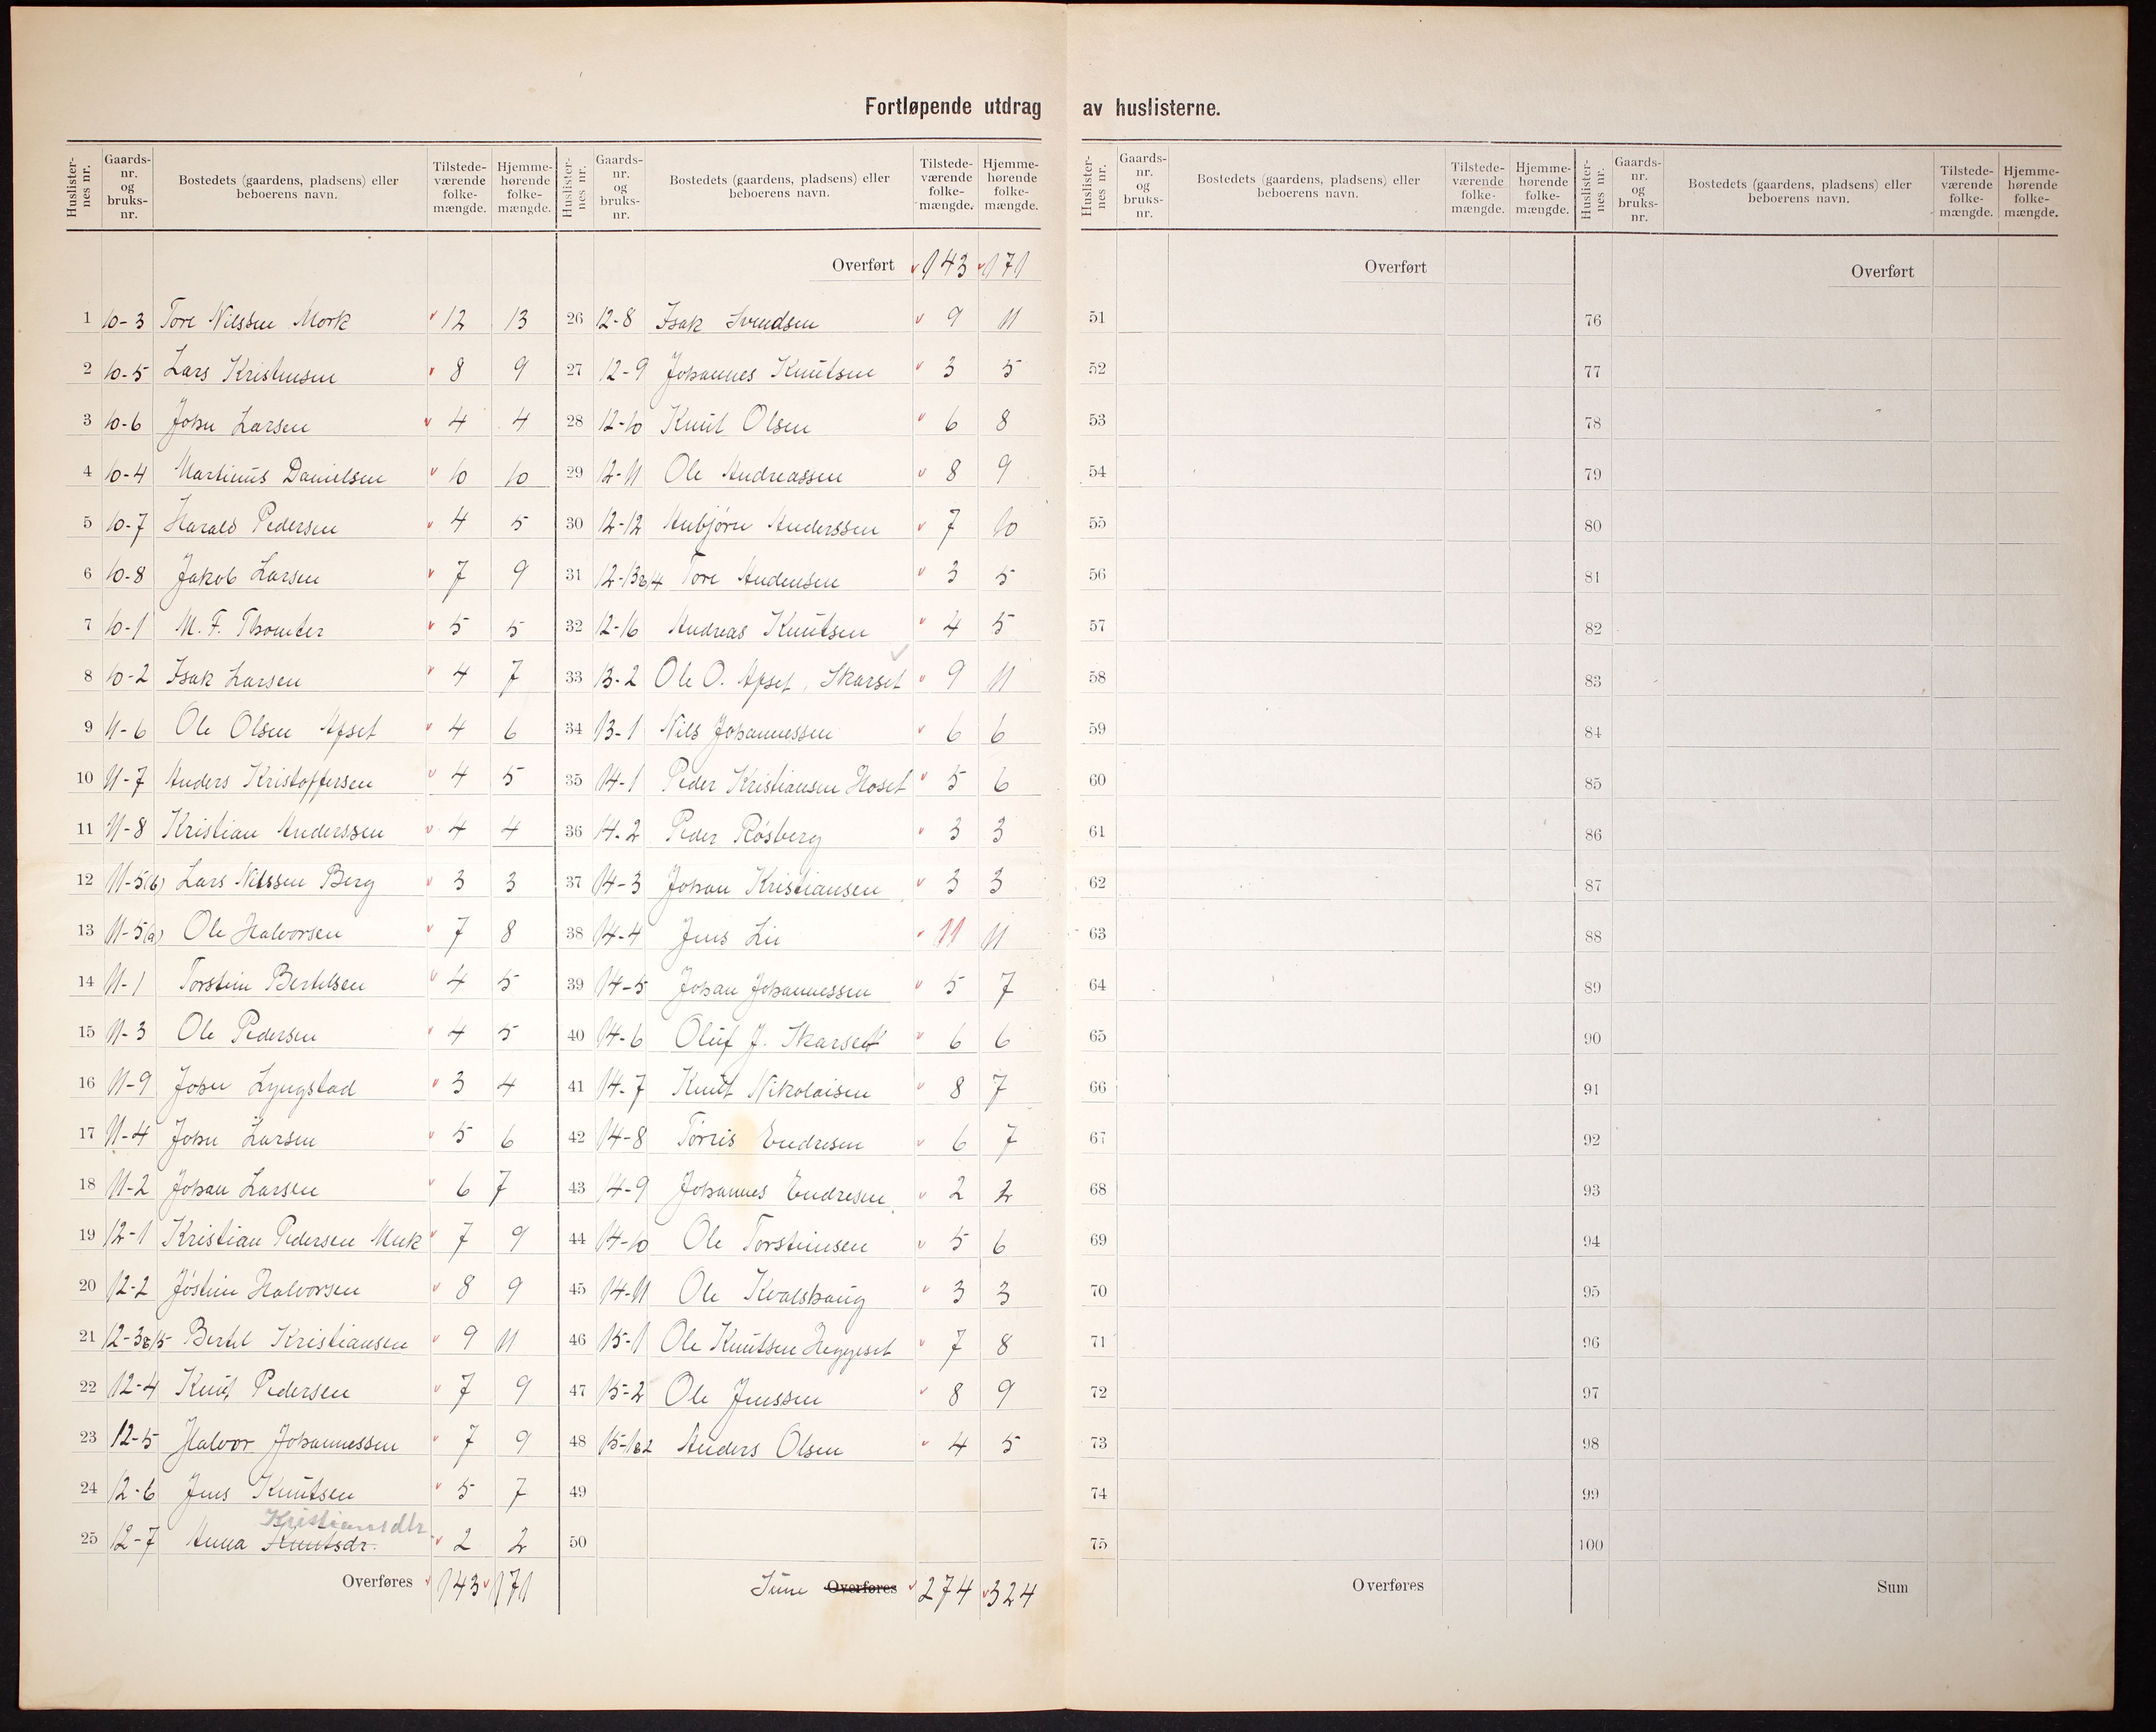 Fortløpende utdrag av huslisterne.
Huslisternes nr. Gaards-nr. og bruks-nr. Bostedets (gaardens, pladsens) eller beboerens navn. Tilstede-værende folke-mængde. Hjemme-hørende folke-mængde. Huslisternes nr. Gaards-nr. og bruks-nr. Bostedets (gaardens, pladsens) eller beboerens navn. Tilstede-værende folke-mængde. Hjemme-hørende folke-mængde.
Overført 143 171
1 10-3 Tore Nilssen Mork 12 13
2 10-5 Lars Kristensen 8 9
3 10-6 John Larsen 4 4
4 10-4 Martinus Danielsen 10 10
5 10-7 Harald Pedersen 4 5
6 10-8 Jakob Larsen 7 9
7 10-1 M. F. Thomter 5 5
8 10-2 Isak Larsen 4 7
9 11-6 Ole Olsen Apset 4 6
10 11-7 Anders Kristoffersen 4 5
11 11-8 Kristian Anderssen 4 4
12 11-5(b) Lars Nilssen Berg 3 3
13 11-5(a) Ole Halvorsen 7 8
14 11-1 Torstein Bertelsen 4 5
15 11-3 Ole Pedersen 4 5
16 11-9 John Lyngstad 3 4
17 11-4 John Larsen 5 6
18 11-2 Johan Larsen 6 7
19 12-1 Kristian Pedersen Muk 7 9
20 12-2 Jöstein Halvorsen 8 9
21 12-3&15 Bertel Kristiansen 9 11
22 12-4 Knut Pedersen 7 9
23 12-5 Halvor Johannessen 7 9
24 12-6 Jens Knutsen 5 7
Kristiansdtr.
25 12-7 Anna Knutsdr. 2 2
Overføres 143 171
26 12-8 Isak Svendsen 9 11
27 12-9 Johannes Knutsen 3 5
28 12-10 Knut Olsen 6 8
29 12-11 Ole Andreassen 8 9
30 12-12 Anbjørn Anderssen 7 10
31 12-13&14 Tore Andersen 3 5
32 12-16 Andreas Knutsen 4 5
33 13-2 Ole O. Apset, Skarset 9 11
34 13-1 Nils Johannessen 6 6
35 14-1 Peder Kristiansen Hoset 5 6
36 14-2 Peder Rösberg 3 3
37 14-3 Johan Kristiansen 3 3
38 14-4 Jens Lie 11 11
39 14-5 Johan Johannessen 5 7
40 14-6 Oluf J. Skarset 6 6
41 14-7 Knut Nikolaisen 8 7
42 14-8 Törris Endresen 6 7
43 14-9 Johannes Endresen 2 2
44 14-10 Ole Torsteinsen 5 6
45 14-11 Ole Kvalshaug 3 3
46 15-1 Ole Knutsen Heggeset 7 8
47 15-2 Ole Jenssen 8 9
48 15-1&2 Anders Olsen 4 5
49
50
Sum Overføres 274 324
Huslisternes nr. Gaards-nr. og bruks-nr. Bostedets (gaardens, pladsens) eller beboerens navn. Tilstede-værende folke-mængde. Hjemme-hørende folke-mængde. Huslisternes nr. Gaards-nr. og bruks-nr. Bostedets (gaardens, pladsens) eller beboerens navn. Tilstede-værende folke-mængde. Hjemme-hørende folke-mængde.
Overført
51
52
53
54
55
56
57
58
59
60
61
62
63
64
65
66
67
68
69
70
71
72
73
74
75
Overføres
Overført
76
77
78
79
80
81
82
83
84
85
86
87
88
89
90
91
92
93
94
95
96
97
98
99
100
Sum